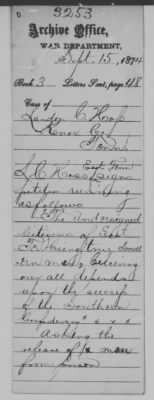 3253
Archive Office,
WAR DEPARTMENT,
Sept. 15, 1874
Book 3 Letters Sent, page 48
Case of
Landon C. 
Knox Co.
Tenn.
East Tenn
L C signs
petition
as follows
"The undersigned
Citizens of East
Tn being true South
ern men, believing
our all depends
upon the success
of the Southern
Confederacy" x x x
Asking the
release of a man
from prison